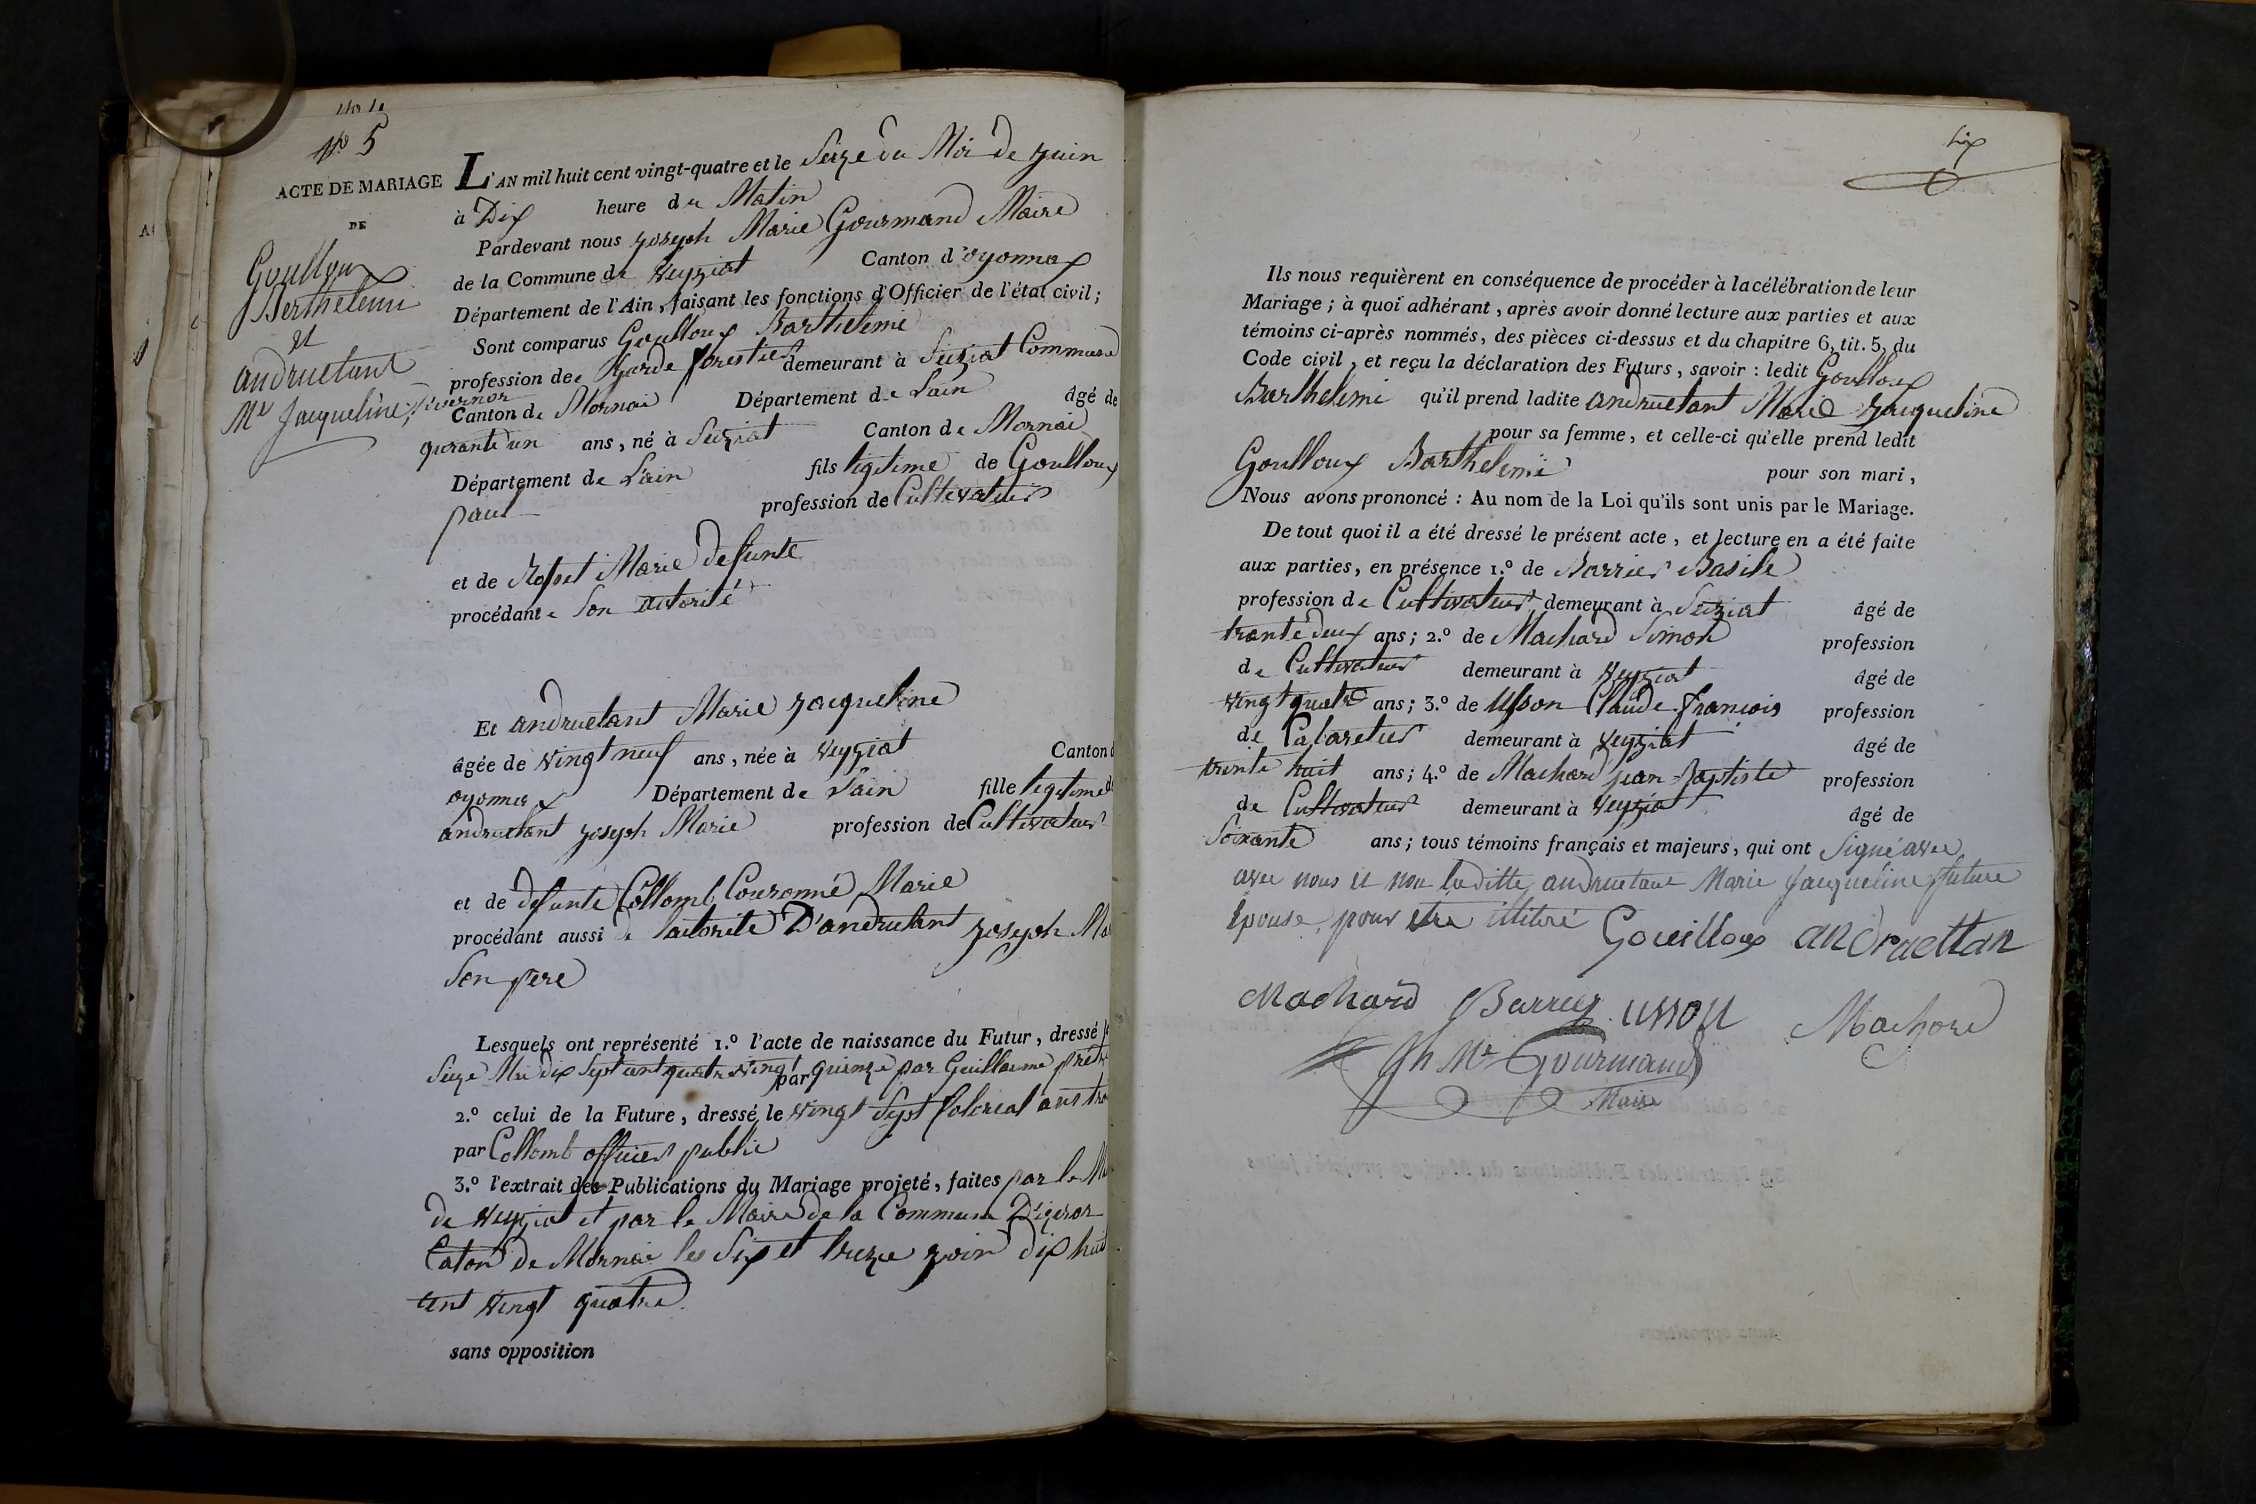 N° 5
ACTE DE MARIAGE
DE
Goulloux
Berthelemi
et
andruetant
Me Jacqueline
L'AN mil huit cent vingt-quatre et le Seize du Moi de juin
à Dix heure du Matin
Pardevant nous joseph Marie Gourmand Maire
de la Commune de Veyziat Canton d'oyonnax
Département de l'Ain, faisant les fonctions d'Officier de l'état civil;
Sont comparus Goulloux Barthelemi
profession de Garde forestier demeurant à Seiziat Commune
d'izernor
Canton de Mornai Département de Lain âgé de
quranté un ans, né à Seiziat Canton de Mornai
Département de L'ain fils legitime de Goulloux
paul profession de Cultivateur
et de Rosset Marie defunte
procédant e Son actorité
Et andruetant Marie jacqueline
âgée de vingt neuf ans, née à Veyziat Canton d
oyonnax Département de Lain fille legitime de
andruetant joseph Marie profession de Cultivateur
et de defunte Collomb Couronné Marie
procédant aussi de lactorité D'andruetant joseph Ma
Son pere
Lesquels ont représenté 1.° l'acte de naissance du Futur, dressé
par Guillaume prétre
2.° celui de la Future, dressé le vingt Sept floréal ans
par Collomb officier public
3.° l'extrait des Publications du Mariage projeté, faites par le
de Veyziat et par le Maire de la Commune D'izernor
Caton de Mornai les Six et treize juin dix huit
cent vingt quatre
sans opposition
Six
Ils nous requièrent en conséquence de procéder à la célébration de leur
Mariage; à quoi adhérant, après avoir donné lecture aux parties et aux
témoins ci-après nommés, des pièces ci-dessus et du chapitre 6, tit. 5, du
Code civil, et reçu la déclaration des Futurs, savoir: ledit Goulloux
Barthelemi qu'il prend ladite andruetant Marie jacqueline
pour sa femme, et celle-ci qu'elle prend ledit
Goulloux Barthelemi pour son mari,
Nous avons prononcé: Au nom de la Loi qu'ils sont unis par le Mariage.
De tout quoi il a été dressé le présent acte, et lecture en a été faite
aux parties, en présence 1.° de Barrier Basile
profession de Cultivateur demeurant à Seiziat âgé de
trante deux ans; 2.° de Machard Simon profession
de Cultivateur demeurant à Veyziat âgé de
vingt quatre ans; 3.° de Usson Claude francois profession
de Cabaretier demeurant à Veyziat âgé de
trente huit ans; 4.° de Machard jean Baptiste profession
de Cultivateur demeurant à Veyziat âgé de
Soixante ans; tous témoins français et majeurs, qui ont Signé avec
avec nous et non laditte andruetant Marie Jacqueline future
Epouse, pour etre illitéré Gouilloux andruettan
Machard Barrier usson Machard
Jh Me Gourmand
Maire